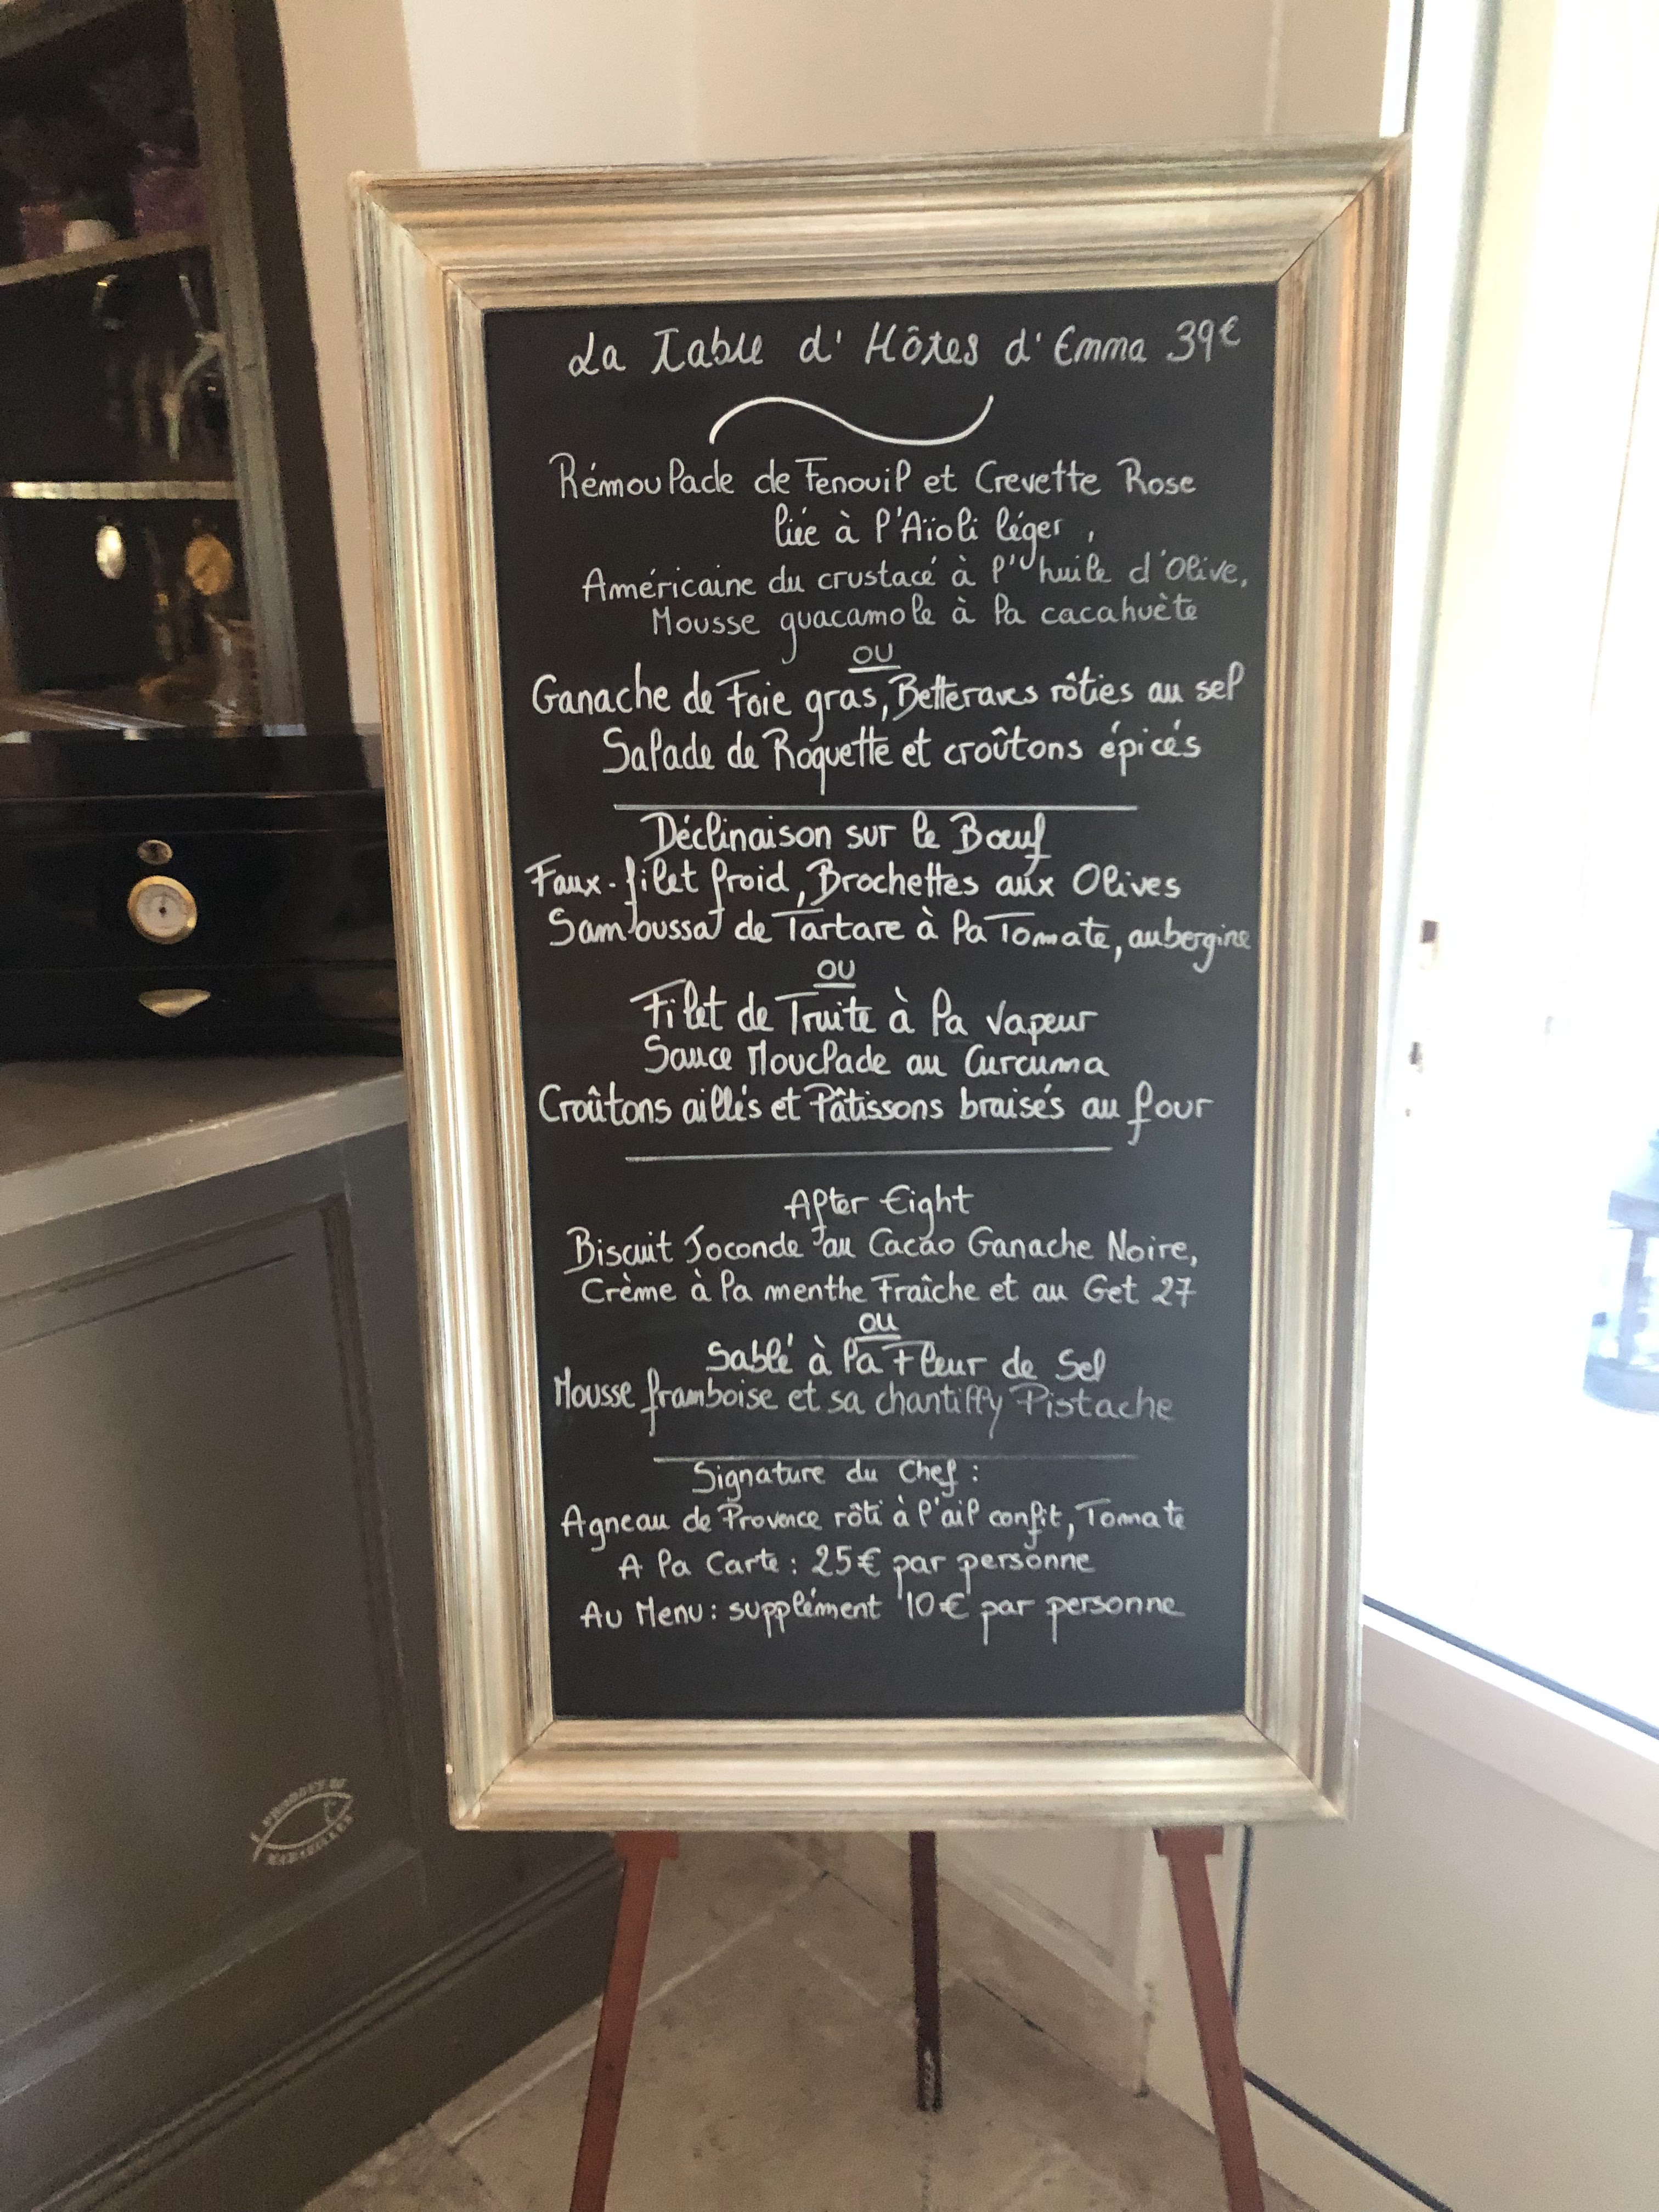 La Table d'Hôtes d'Emma 39€
Rémoulade de Fenouil et Crevette Rose
liée à l'Aïoli léger,
Américaine du crustacé à l'huile d'Olive,
Mousse guacamole à la cacahuète
ou
Ganache de Foie gras, Betteraves rôties au sel
Salade de Roquette et croûtons épicés
Déclinaison sur le Bœuf
Faux-filet froid, Brochettes aux Olives
Samoussa de Tartare à la Tomate, aubergine
ou
Filet de Truite à la Vapeur
Sauce Mouclade au Curcuma
Croûtons aillés et Pâtissons braisés au four
After Eight
Biscuit Joconde au Cacao Ganache Noire,
Crème à la menthe Fraîche et au Get 27
ou
Sablé à la Fleur de Sel
Mousse framboise et sa chantilly Pistache
Signature du Chef :
Agneau de Provence rôti à l'ail confit, Tomate
A la Carte : 25€ par personne
Au Menu : supplément 10€ par personne